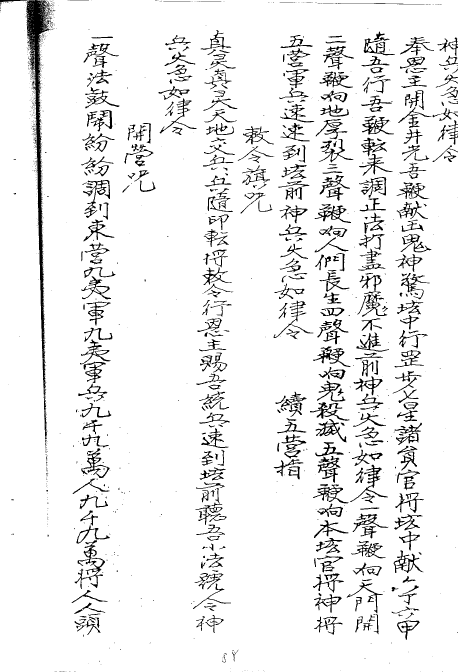 神兵火急如律令
奉恩主開金井光吾鞭献出鬼神驚垓中行罡步七星諸員官將垓中献六丁六甲
隨吾行吾鞭転来調正法打盡邪魔不進前神兵火急如律令一聲鞭响天門開
二聲鞭响地厚裂三聲鞭响人們長生四聲鞭响鬼殺滅五聲鞭响本垓官將神將
五營軍兵速速到垓前神兵火急如律令
續五營指
敕令旗咒
真灵真灵天地交兵兵隨印転將敕令行恩主賜吾統兵速到垓前聽吾小法號令神
兵火急如律令
開營咒
一聲法鼓鬧紛紛調到東營九夷軍九夷軍兵九千九萬人九千九萬將人人頭